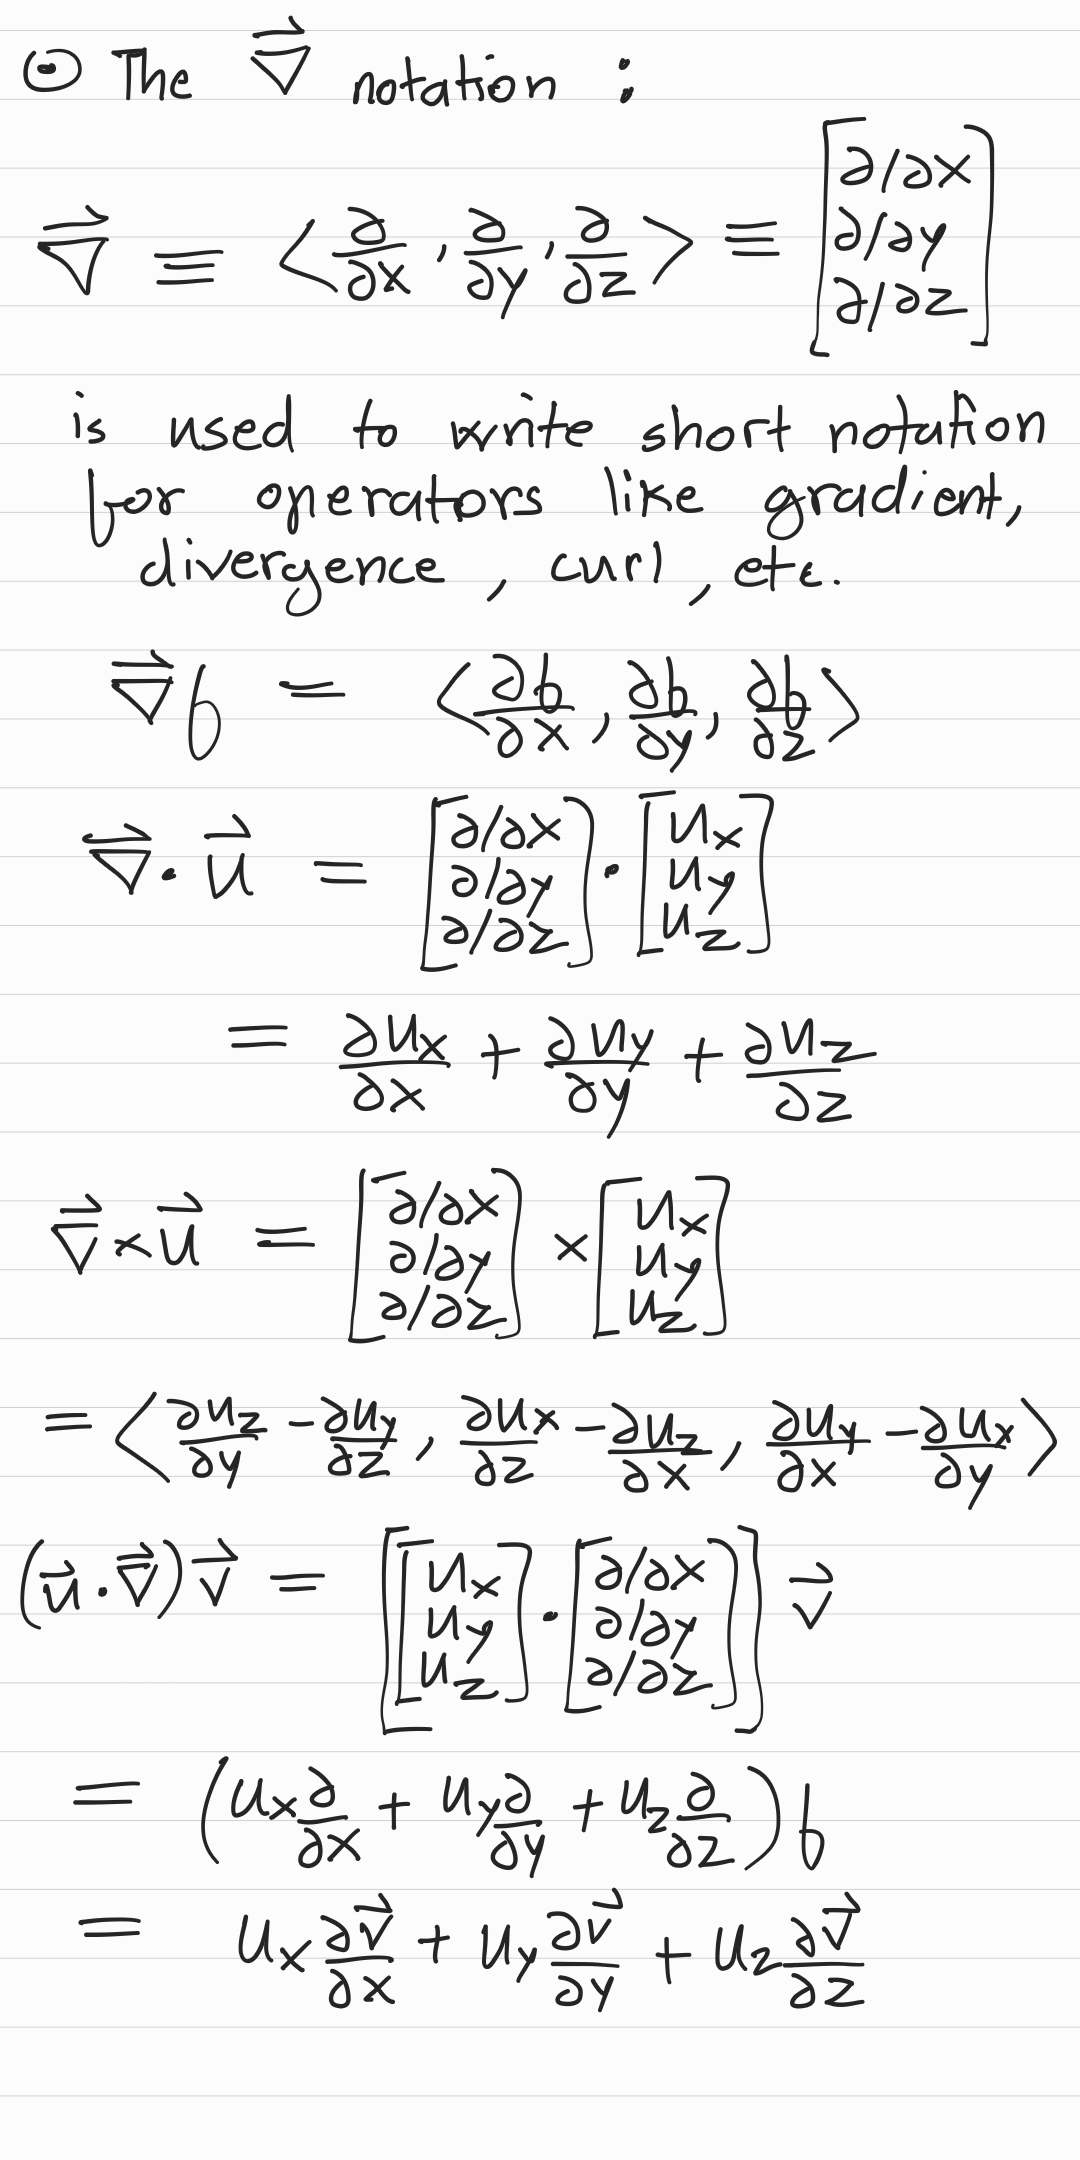 ⊙ The ∇⃗ notation :
∇⃗ ≡ ⟨∂/∂x, ∂/∂y, ∂/∂z⟩ ≡ [∂/∂x ∂/∂y ∂/∂z]
is used to write short notation
for operators like gradient,
divergence, curl, etc.
∇⃗f = ⟨∂f/∂x, ∂f/∂y, ∂f/∂z⟩
∇⃗·u⃗ = [∂/∂x ∂/∂y ∂/∂z]·[uₓ u_y u_z]
= ∂uₓ/∂x + ∂u_y/∂y + ∂u_z/∂z
∇⃗×u⃗ = [∂/∂x ∂/∂y ∂/∂z]×[uₓ u_y u_z]
= ⟨∂u_z/∂y - ∂u_y/∂z, ∂uₓ/∂z - ∂u_z/∂x, ∂u_y/∂x - ∂uₓ/∂y⟩
(u⃗·∇⃗)v⃗ = [[uₓ u_y u_z]·[∂/∂x ∂/∂y ∂/∂z]] v⃗
= (uₓ ∂/∂x + u_y ∂/∂y + u_z ∂/∂z) f
= uₓ ∂v⃗/∂x + u_y ∂v⃗/∂y + u_z ∂v⃗/∂z